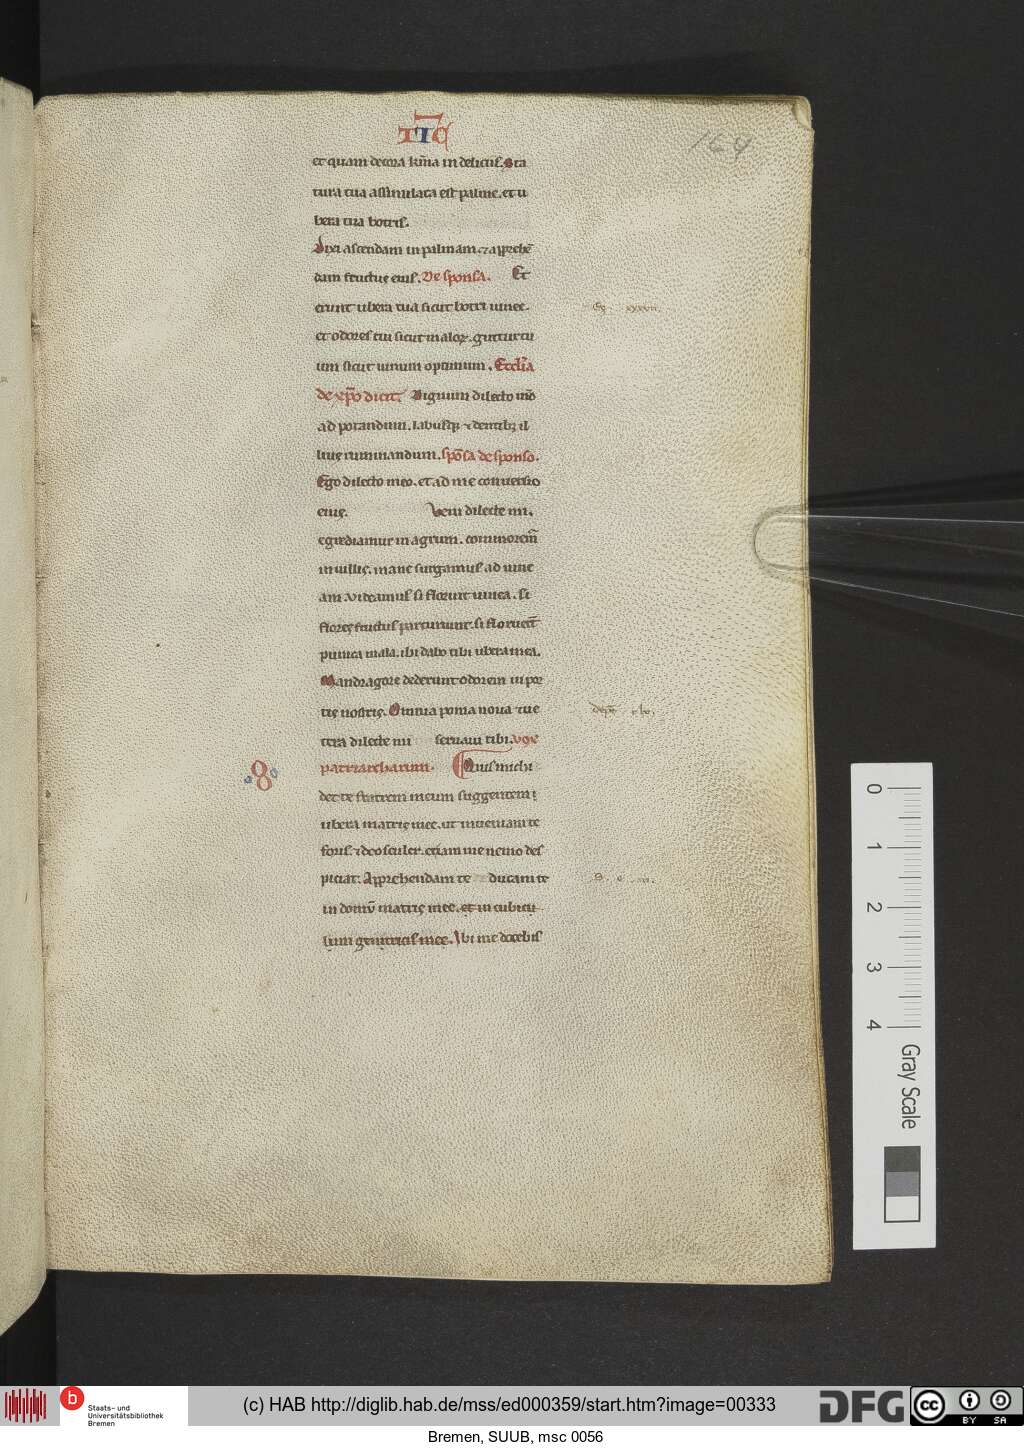 TIC
164
et quam decora kma in delicus. Sta
tura tua assimulata est palme. et u
bera tua botris.
Dixi ascendam in palmam. ⁊ apprehē
dam fructus eius. De sponsa. Et
erunt ubera tua sicut botri uinee.
et odores tui sicut maloꝝ. guttur tu
um sicut uinum optimum. Ecclīa
de xp̄o dicit. Dignum dilecto mō
ad potandum. labiisqꝫ ⁊ dentibꝫ il
lius ruminandum. spōsa de sponso.
Ego dilecto meo. et ad me conuersio
eius. Veni dilecte mi.
egrediamur in agrum. commorem̄
in uillis. mane surgamus ad uine
am. uideamus si floruit uinea. si
flores fructus parturiunt. si floruer̄t
punica mala. ibi dabo tibi ubera mea.
Mandragore dederunt odorem in por
tis nostris. Omnia poma noua ⁊ ue
tera dilecte mi seruaui tibi. vox
patriarcharum. Quis michi
8
det te fratrem meum suggentem
ubera matris mee. ut inueniam te
foris. ⁊ deosculer. et iam me nemo des
piciat. Apprehendam te ducam te
in domū matris mee. et in cubicu
lum genitricis mee. Ibi me docebis
0
1
2
3
4
Gray Scale
b
Staats- und
Universitätsbibliothek
Bremen
(c) HAB http://diglib.hab.de/mss/ed000359/start.htm?image=00333
DFG
cc
BY SA
Bremen, SUUB, msc 0056